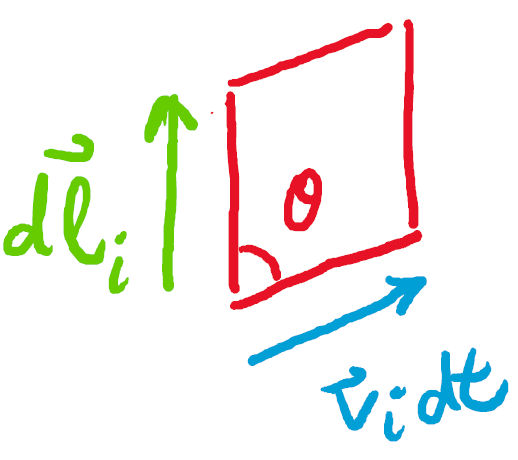 θ
d\vec{l}_i
\vec{v}_i dt